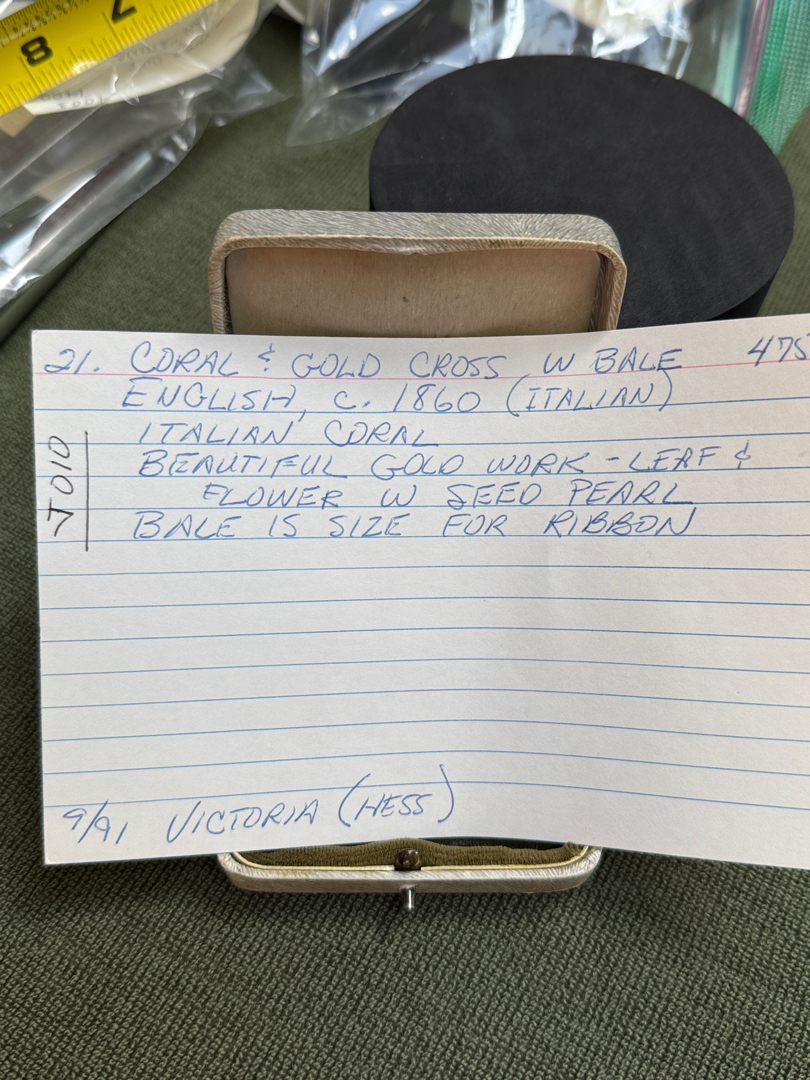 8 7
21. CORAL & GOLD CROSS W BALE 475
ENGLISH, c. 1860 (ITALIAN)
ITALIAN CORAL
BEAUTIFUL GOLD WORK - LEAF &
FLOWER W SEED PEARL
BALE IS SIZE FOR RIBBON
JO10
9/91 VICTORIA (HESS)